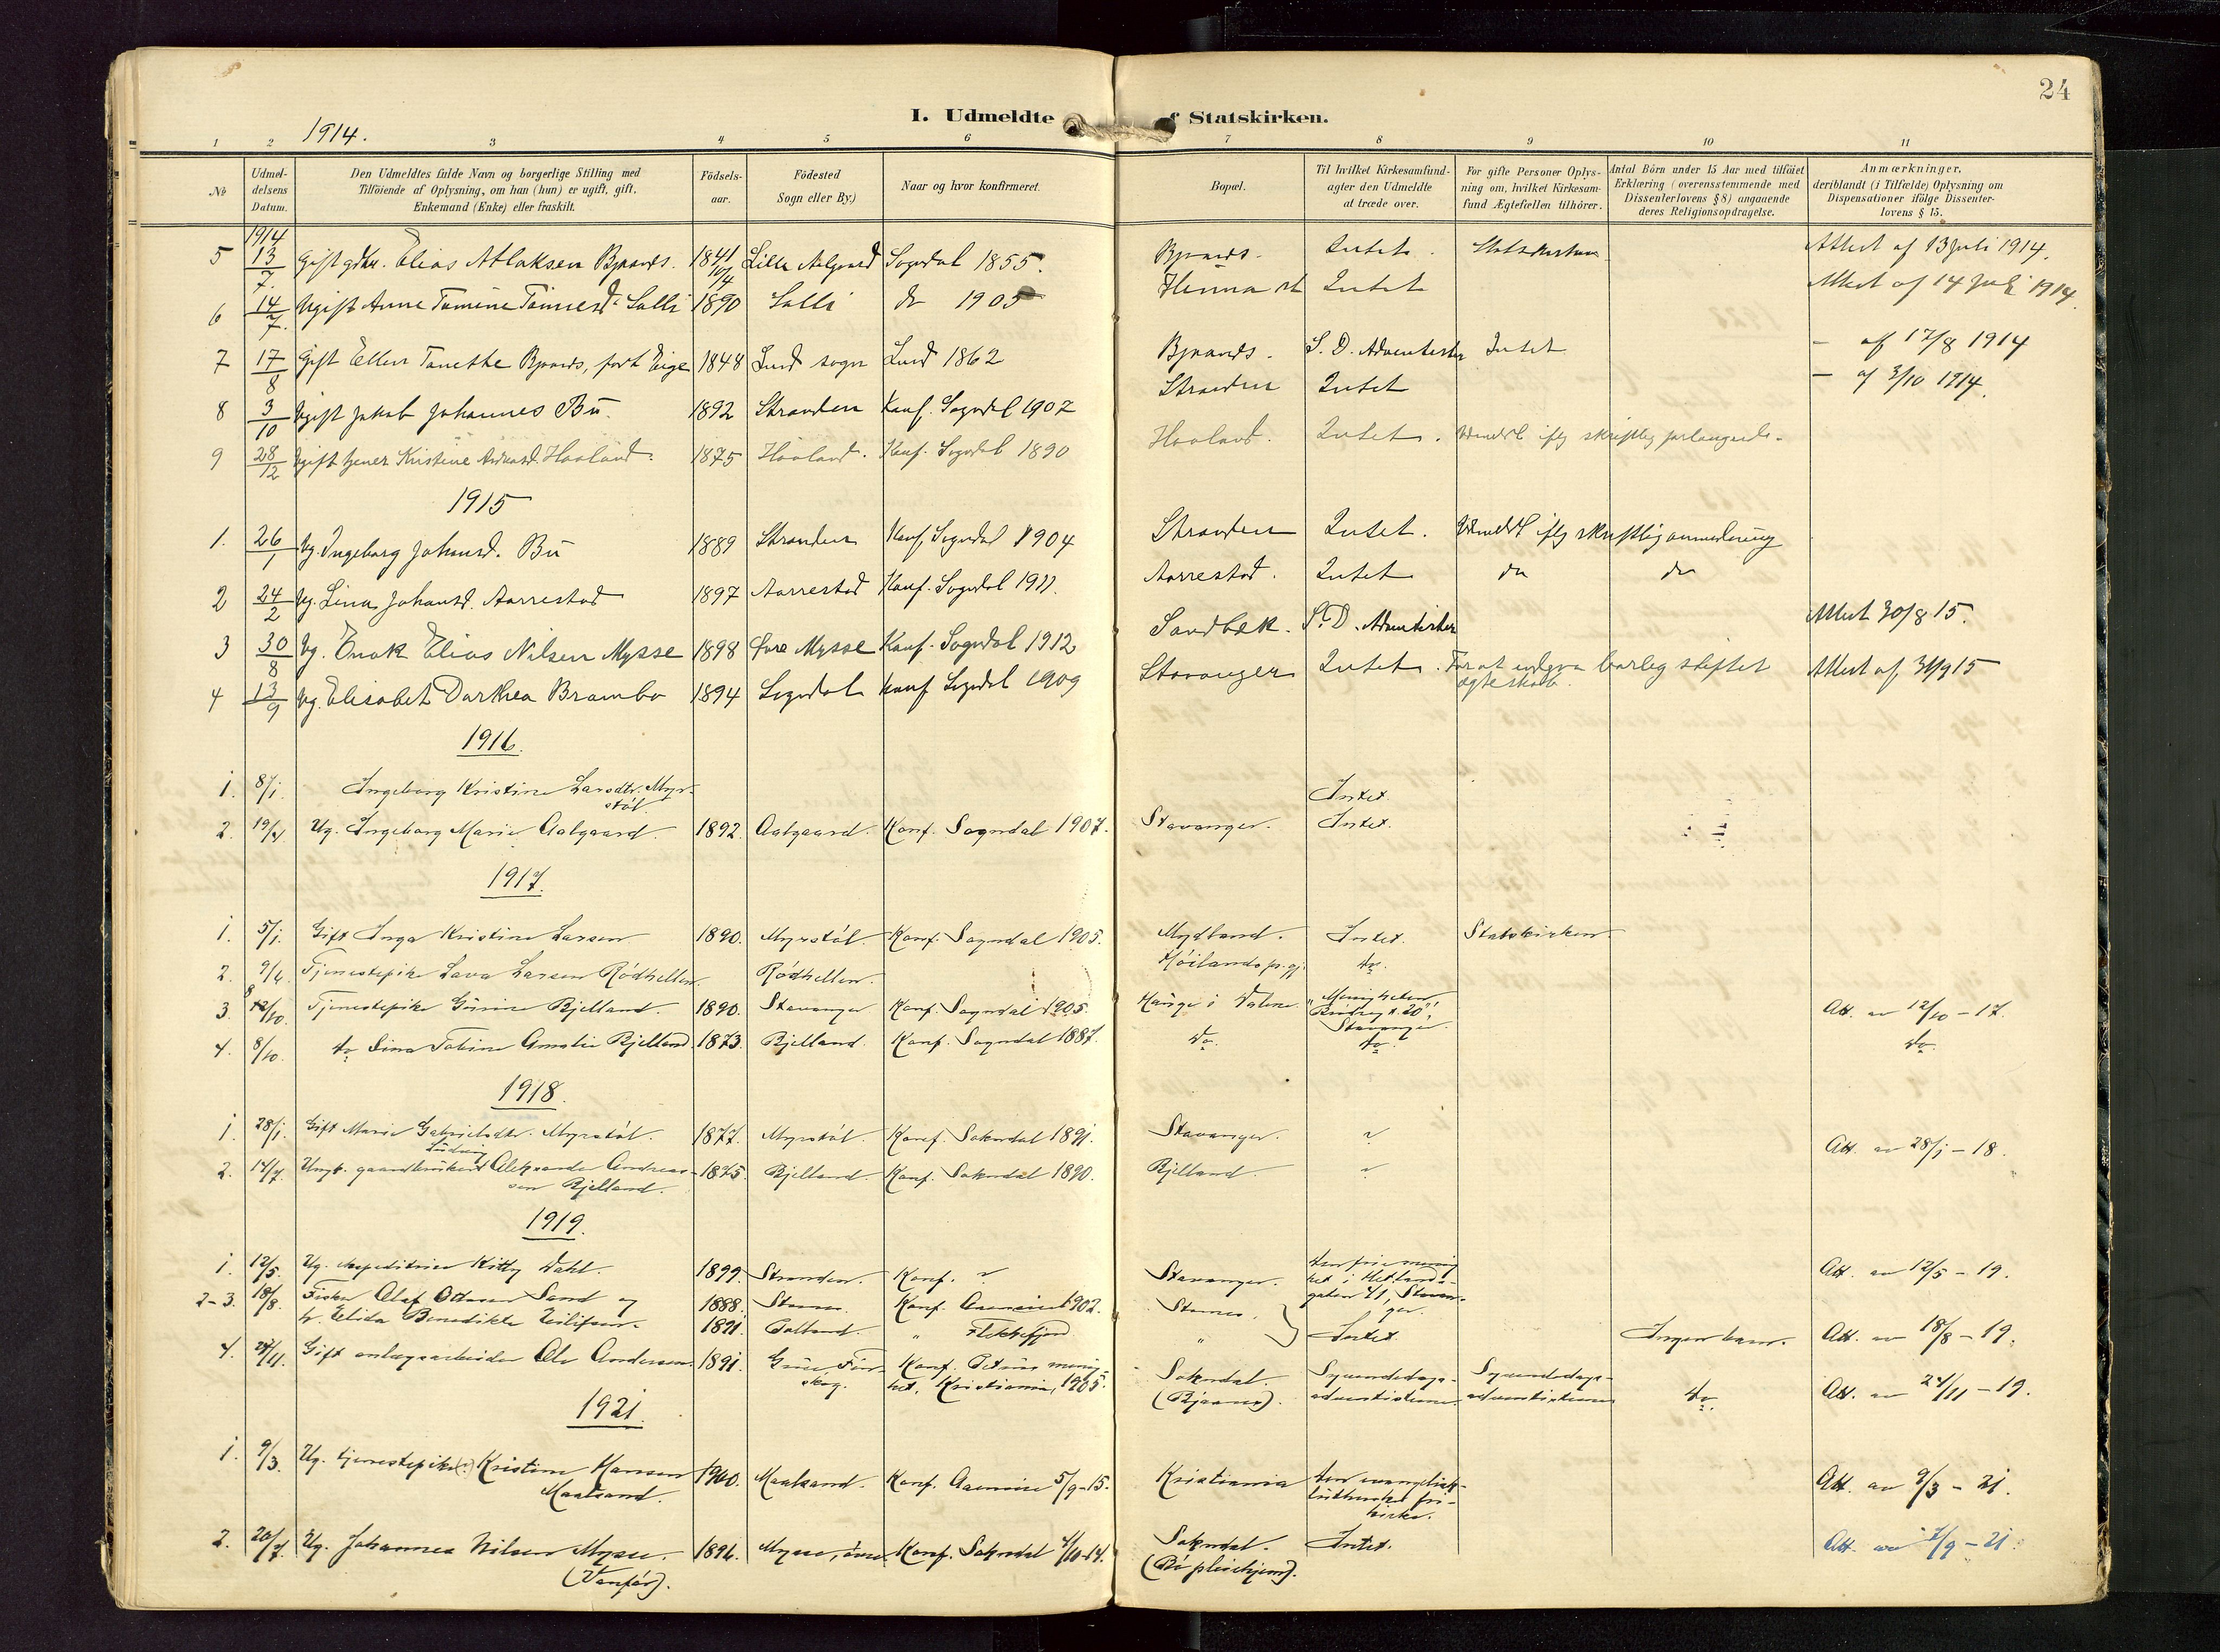 24
I. Udmeldte af Statskirken.
1914.
1 2 3 4 5 6 7 8 9 10 11
No
Udmel-
delsens
Datum.
Den Udmeldtes fulde Navn og borgerlige Stilling med
Tilföiende af Oplysning, om han (hun) er ugift, gift,
Enkemand (Enke) eller fraskilt.
Födsels-
aar.
Födested
Sogn eller By.)
Naar og hvor konfirmeret.
Bopæl.
Til hvilket Kirkesamfund
agter den Udmeldte
at træde over.
For gifte Personer Oplys-
ning om, hvilket Kirkesam-
fund Ægtefællen tilhörer.
Antal Börn under 15 Aar med tilföiet
Erklæring (overensstemmende med
Dissenterlovens § 8) angaaende
deres Religionsopdragelse.
Anmærkninger,
deriblandt (i Tilfælde) Oplysning om
Dispensationer ifölge Dissenter-
lovens § 15.
1914
5 13/7 Gift gdbr. Elias Atlaksen Bjaands. 1841 Lille Aalgaard Sogndal 1855. Bjaands. Intet. Statskirken Attest af 13 juli 1914.
6 14/7. Ugift Anne Tomine Tönnesd. Salli 1890 Salli do 1905 Intet Attest af 14 juli 1914.
7 17/8 Gift Ellen Tanethe Bjaands, født Eige 1848 Lund sogn Lund 1862 Bjaands. S. D. Adventister Intet — af 17/8 1914
8 3/10 Ugift Jakob Johannes Bü. 1892 Stranden Konf. Sogndal 1907 Stranden Intet — af 3/10 1914.
9 28/12 Ugift tjener Kristine Haaland. 1875 Haaland. Konf. Sogndal 1890 Haaland. Intet. Udmeldt iflg skriftlig forlangende.
1915
1. 26/1 Ug. Ingeborg Johansd. Bü 1889 Stranden Konf. Sogndal 1904 Stranden Intet. Udmeldt iflg skriftlig anmodning
2 24/2 Ug. Lina Johansd. Aarrestad 1897 Aarrestad Konf. Sogndal 1911. Aarrestad. Intet do do
3 30/8 Ug. Enok Elias Nilsen Mysse 1898 Øvre Mysse Konf. Sogndal 1912 Sandbæk. S. D. Adventister Attest 30/8 15.
4 13/9 Ug. Elisabet Dorthea Brambo 1894 Sogndal Konf Sogndal 1909 Stavanger Intet. For at indgaa borlig stiftet
ægteskab. Attest af 15
1916.
1. 8/1. Ingeborg Kristine Larsdtr. Myr-
stöl. Intet.
2. 19/4. Ug. Ingeborg Marie Aalgaard. 1892. Aalgaard. Konf. Sogndal 1907. Stavanger. Intet.
1917.
1. 5/1. Gift Inga Kristine Larsen 1890. Myrstöl. Konf. Sogndal 1905. Mydland. Intet. Statskirken
2. 9/6. Tjenestepike Lava Larsen Rödhellen. Rödhellen. Höilands pr.gj. do.
3. 8/10. Tjenestepike Gurine Bjelland. 1890. Stavanger Konf. Sogndal 1905. Hauge i Dalene. "Menigheten
Stavanger. Att. av 12/10 – 17.
4. 8/10. do Sina Tobine Amalie Bjelland. 1873. Bjelland. Konf. Sogndal 1887. Do. do. do.
1918.
1. 28/1. Gift Marie Gabrielsdtr. Myrstöl. 1877. Myrstöl. Konf. Sokndal 1891. Stavanger. ? Att. av 28/1 – 18.
2. 14/7. Ungk. gaardbruker Ludvig Aleksander Andreas-
sen Bjelland. 1875. Bjelland. Konf. Sokndal 1890. Bjelland. ?
1919.
1. 12/5. Ug. ekspeditrice Kitty Dahl. 1899. Stranden. Konf. ? Stavanger. den frie menig
het i Hetlands-
gaten 41, Stavan-
ger. Att. av 12/5 – 19.
2-3. 18/8. Fisker Olaf Ottesen Sand og 1888. Stornes. Konf. Aaensire 1902. Stornes.
h. Elida Benedikte Eilifsen. 1891. " Flekkefjord " Intet. Ingen barn. Att. av 18/8 – 19.
4. 24/11. Gift anlægsarbeider Ole Andersen. 1891. Grue Fin-
skog. Konf. Petrus menig-
het, Kristiania, 1905. Sokndal.
(Bjaanes). Syvendedags-
adventisterne. Syvendedags-
adventisterne do. Att. av 24/11 – 19.
1921.
1. 9/3. Ug. tjenestepike(?) Kristine Hansen
Maalsand. 1900. Maalsand. Konf. Aaensire 5/9–15. Kristiania den evangelisk-
lutherske fri-
kirke. Att. av 9/3 – 21.
2. 20/7. Ug. Johannes Nilsen Mysse.
(Vanför). 1896. Mysse, övre. Konf. Sokndal 4/10–14. Sokndal.
(Bö pleiehjem). Intet. Att. av 7/9 – 21.